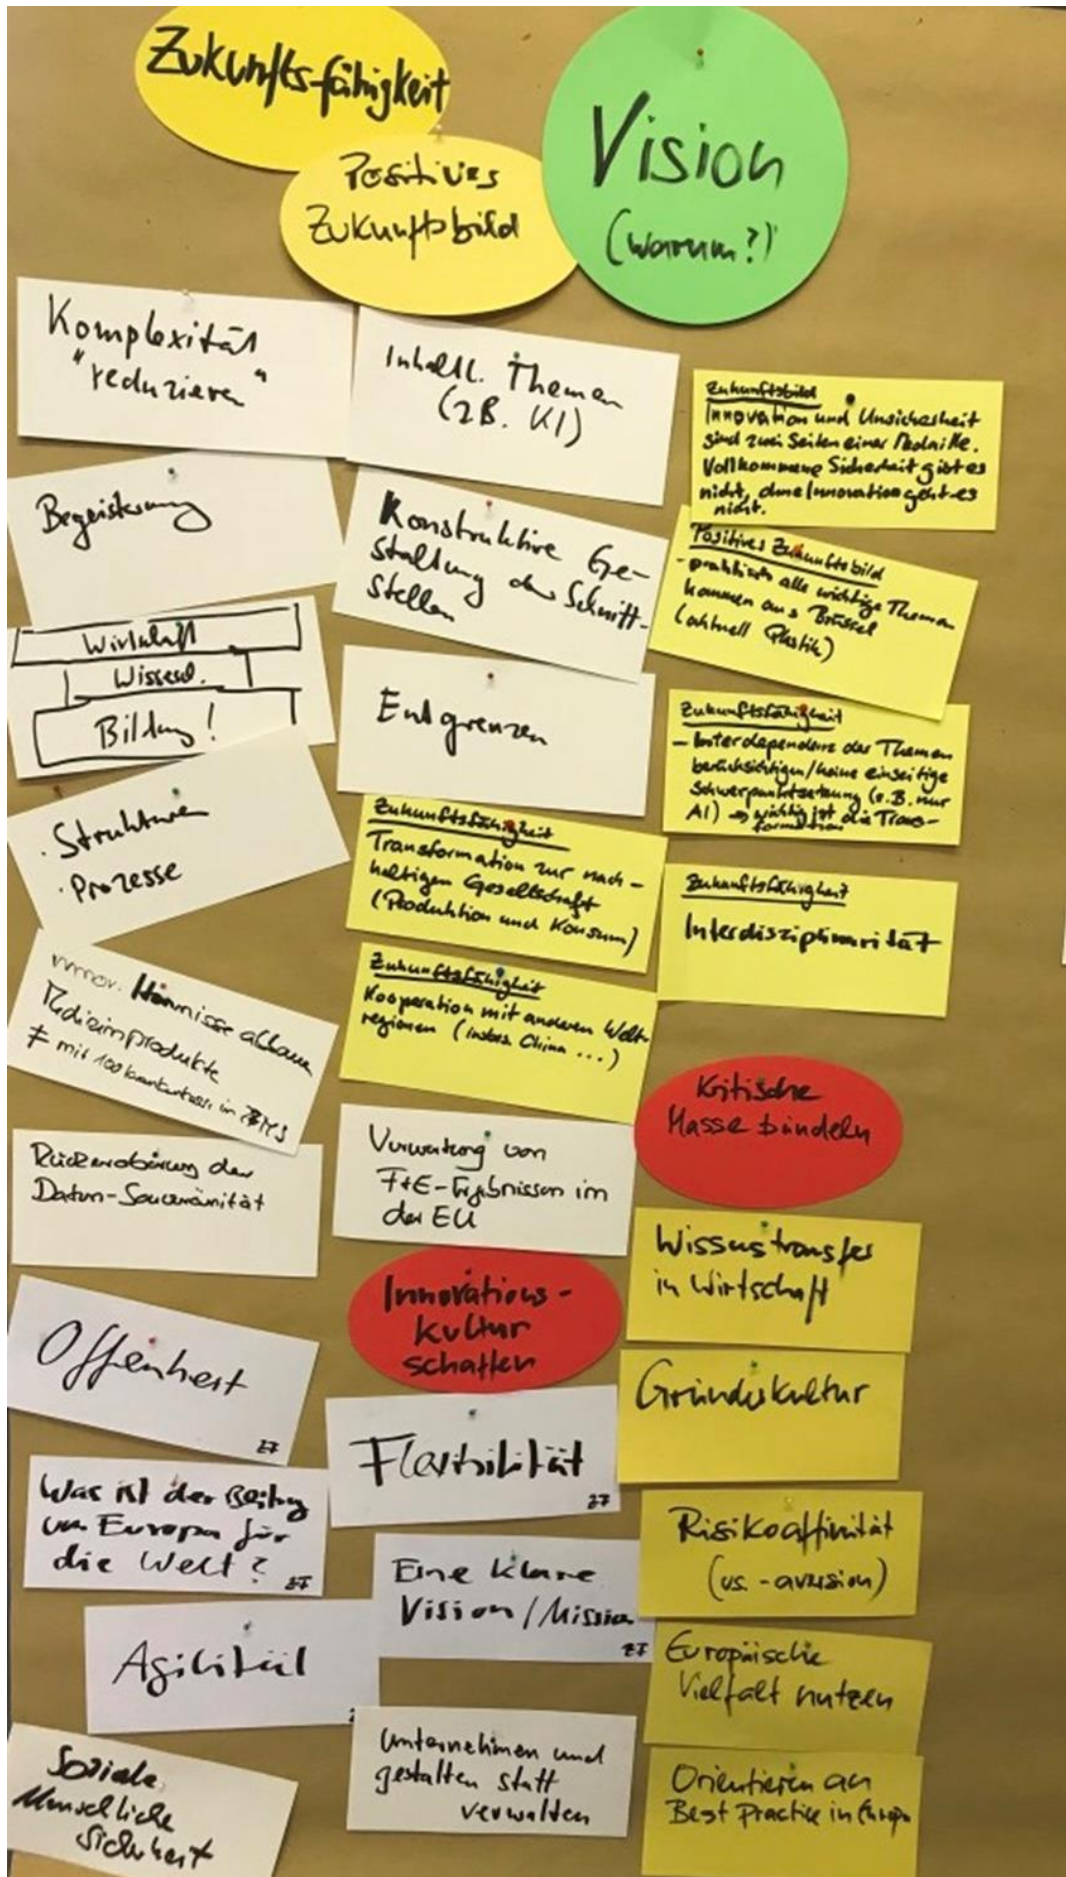 Zukunftsfähigkeit
Positives
Zukunftsbild
Vision
(warum?)
Komplexität
"reduzieren"
Begeisterung
Wirtschaft
Wissensch.
Bildung!
· Strukturen
· Prozesse
innov. Hemmnisse abbauen
Medizinprodukte
≠ mit 100 Krankenkassen in
Rückeroberung der
Daten-Souveränität
Offenheit
ZF
Was ist der Beitrag
von Europa für
die Welt?
ZF
Agilität
Soziale
Menschliche
Sicherheit
Inhaltl. Themen
(z.B. KI)
Konstruktive Ge-
staltung der Schnitt-
stellen
Entgrenzen
Zukunftsfähigkeit
Transformation zur nach-
haltigen Gesellschaft
(Produktion und Konsum)
Zukunftsfähigkeit
Kooperation mit anderen Welt-
regionen (insbes. China ...)
Verwertung von
F+E-Ergebnissen in
der EU
Innovations-
kultur
schaffen
Flexibilität
ZF
Eine klare
Vision/Mission
ZF
Unternehmen und
gestalten statt
verwalten
Zukunftsbild
Innovation und Unsicherheit
sind zwei Seiten einer Medaille.
Vollkommene Sicherheit gibt es
nicht, ohne Innovation geht es
nicht.
Positives Zukunftsbild
- praktisch alle wichtige Themen
kommen aus Brüssel
(aktuell Plastik)
Zukunftsfähigkeit
- Interdependenz der Themen
berücksichtigen/keine einseitige
Schwerpunktsetzung (z.B. nur
AI) → wichtig ist die Trans-
formation
Zukunftsfähigkeit
Interdisziplinarität
Kritische
Masse bündeln
Wissenstransfer
in Wirtschaft
Gründerkultur
Risikoaffinität
(vs. -aversion)
Europäische
Vielfalt nutzen
Orientieren an
Best Practice in Europa